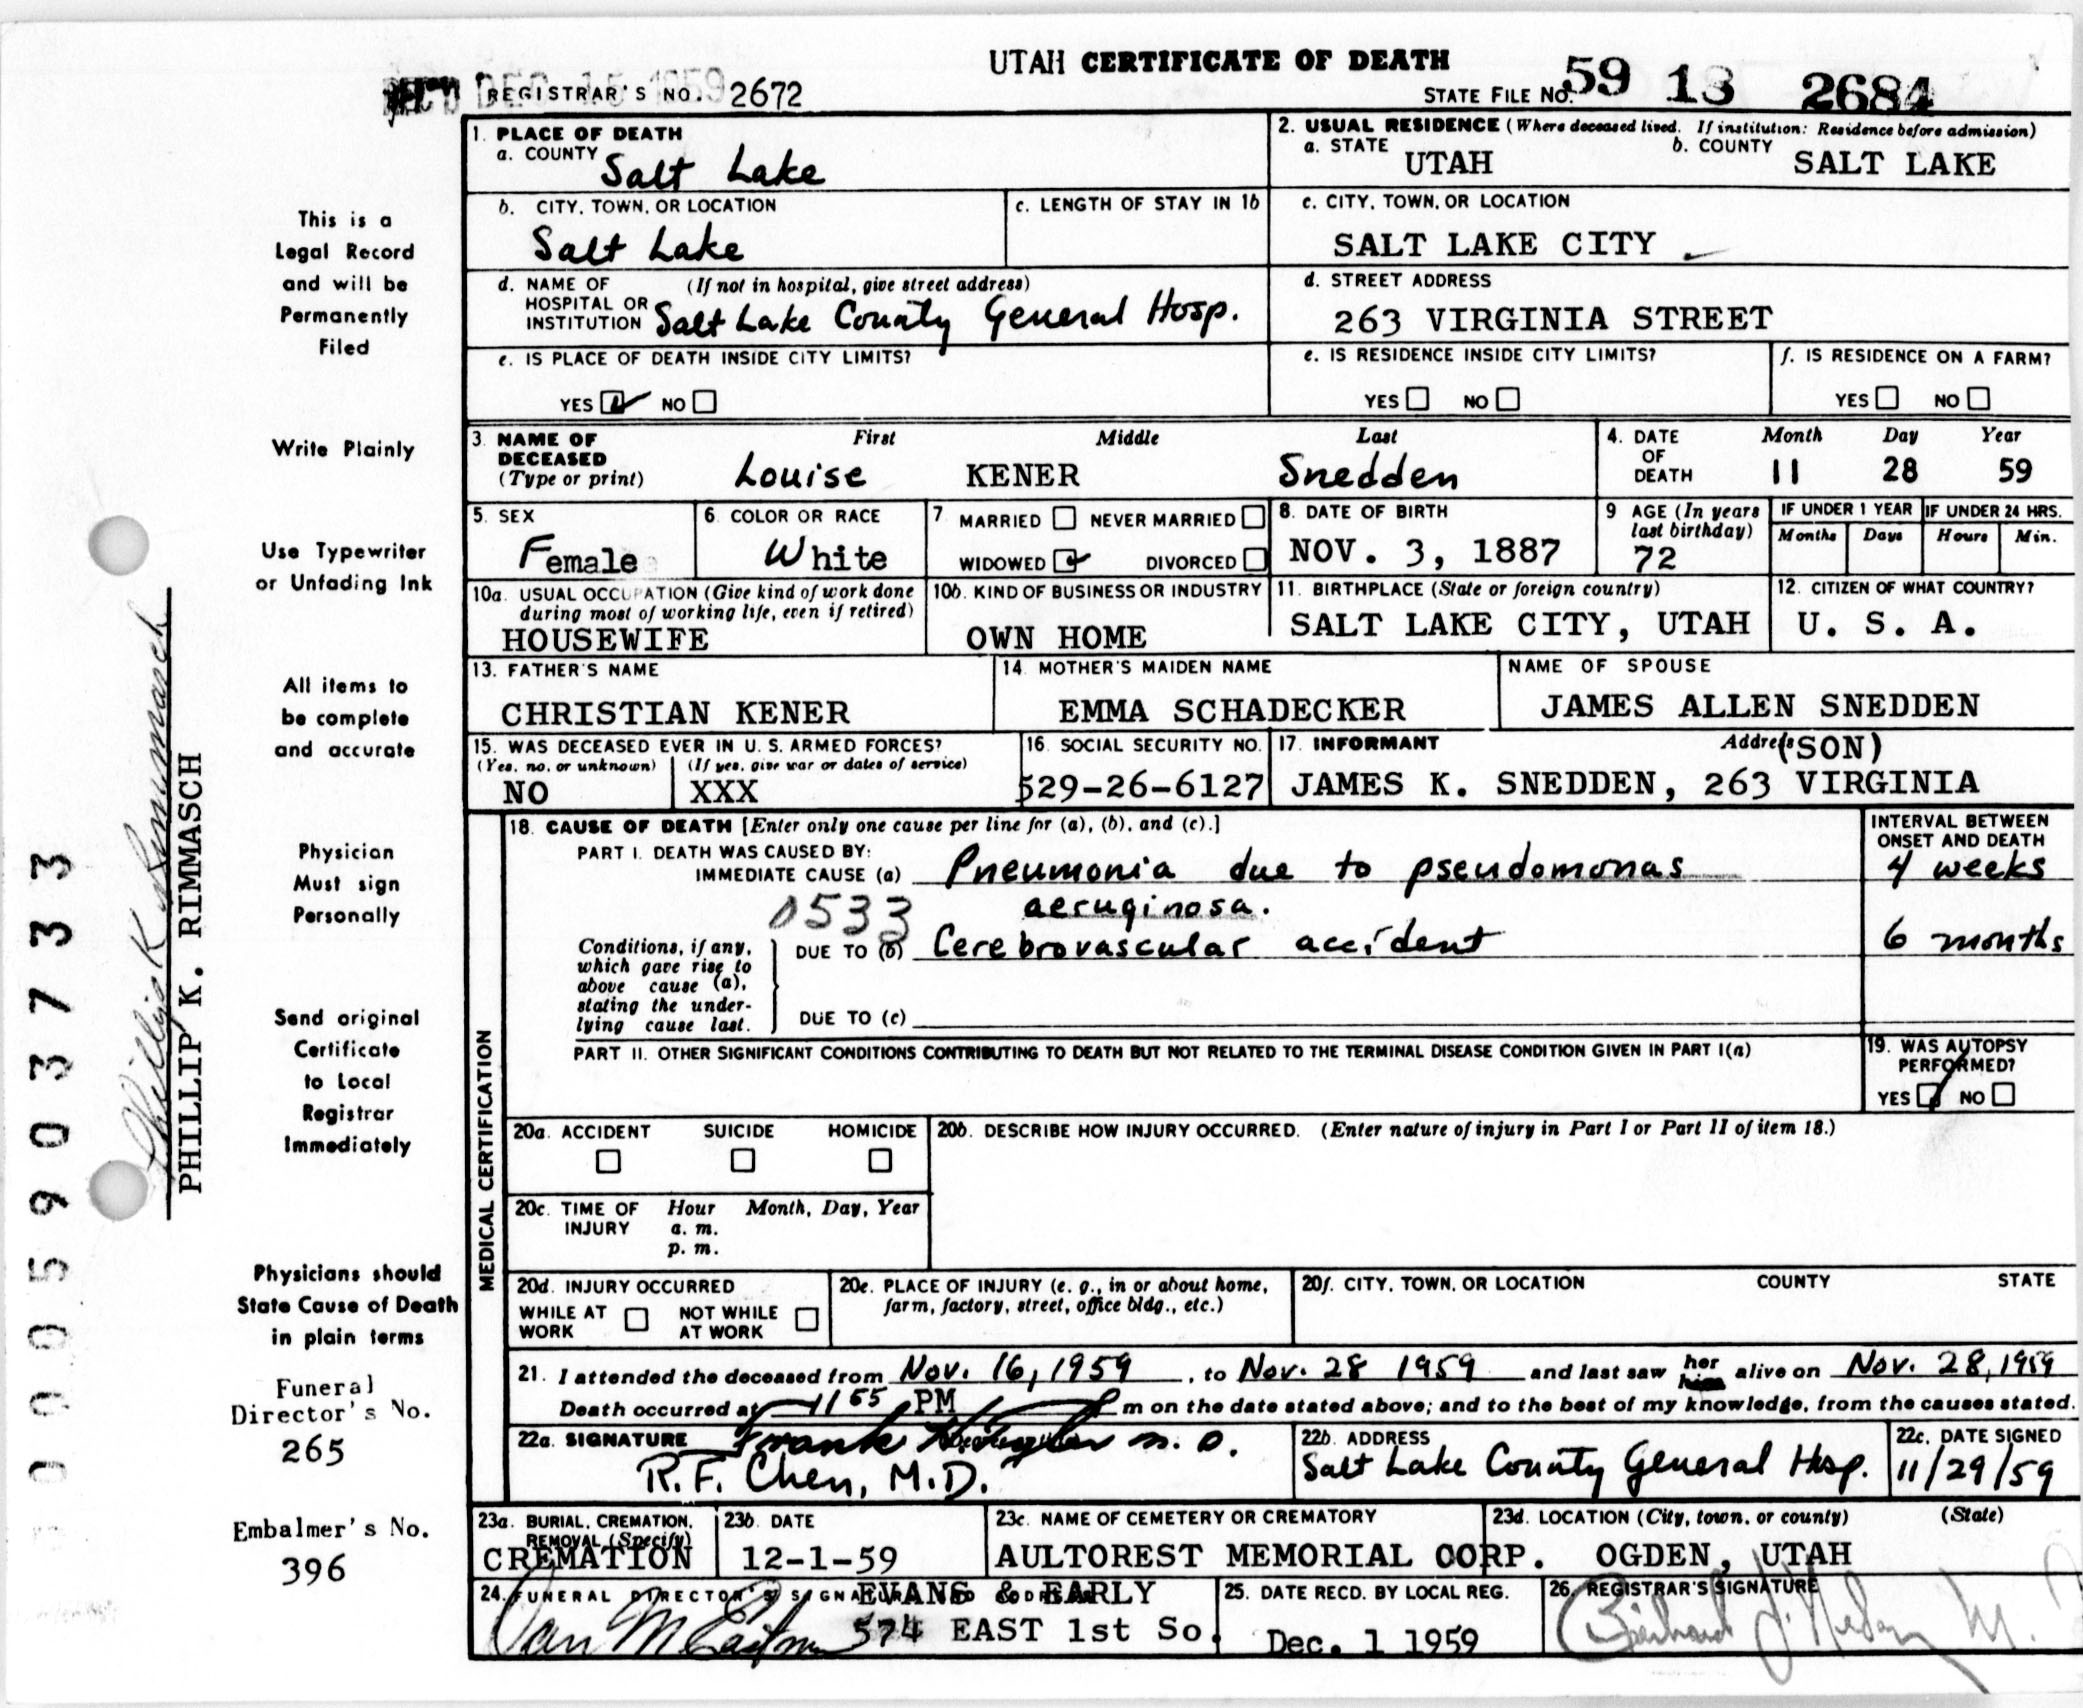 UTAH CERTIFICATE OF DEATH
REC'D DEC 15 1959
REGISTRAR'S NO. 2672
STATE FILE NO. 59 13 2684
1. PLACE OF DEATH
a. COUNTY Salt Lake
2. USUAL RESIDENCE (Where deceased lived. If institution: Residence before admission)
a. STATE UTAH b. COUNTY SALT LAKE
b. CITY, TOWN, OR LOCATION Salt Lake
c. LENGTH OF STAY IN 1b
c. CITY, TOWN, OR LOCATION SALT LAKE CITY
d. NAME OF HOSPITAL OR INSTITUTION (If not in hospital, give street address) Salt Lake County General Hosp.
d. STREET ADDRESS 263 VIRGINIA STREET
e. IS PLACE OF DEATH INSIDE CITY LIMITS? YES NO
e. IS RESIDENCE INSIDE CITY LIMITS? YES NO
f. IS RESIDENCE ON A FARM? YES NO
3. NAME OF DECEASED (Type or print) First Middle Last
Louise KENER Snedden
4. DATE OF DEATH Month Day Year
11 28 59
5. SEX Female
6. COLOR OR RACE White
7 MARRIED NEVER MARRIED WIDOWED DIVORCED
8. DATE OF BIRTH NOV. 3, 1887
9 AGE (In years last birthday) 72
IF UNDER 1 YEAR Months Days
IF UNDER 24 HRS. Hours Min.
10a. USUAL OCCUPATION (Give kind of work done during most of working life, even if retired) HOUSEWIFE
10b. KIND OF BUSINESS OR INDUSTRY OWN HOME
11. BIRTHPLACE (State or foreign country) SALT LAKE CITY, UTAH
12. CITIZEN OF WHAT COUNTRY? U. S. A.
13. FATHER'S NAME CHRISTIAN KENER
14. MOTHER'S MAIDEN NAME EMMA SCHADECKER
NAME OF SPOUSE JAMES ALLEN SNEDDEN
15. WAS DECEASED EVER IN U. S. ARMED FORCES? (Yes, no, or unknown) (If yes, give war or dates of service)
NO XXX
16. SOCIAL SECURITY NO. 529-26-6127
17. INFORMANT Address (SON)
JAMES K. SNEDDEN, 263 VIRGINIA
MEDICAL CERTIFICATION
18. CAUSE OF DEATH [Enter only one cause per line for (a), (b), and (c).]
INTERVAL BETWEEN ONSET AND DEATH
PART I. DEATH WAS CAUSED BY:
IMMEDIATE CAUSE (a) Pneumonia due to pseudomonas 4 weeks
0533 aeruginosa.
Conditions, if any, which gave rise to above cause (a), stating the underlying cause last.
DUE TO (b) Cerebrovascular accident 6 months
DUE TO (c)
PART II. OTHER SIGNIFICANT CONDITIONS CONTRIBUTING TO DEATH BUT NOT RELATED TO THE TERMINAL DISEASE CONDITION GIVEN IN PART I(a)
19. WAS AUTOPSY PERFORMED? YES NO
20a. ACCIDENT SUICIDE HOMICIDE
20b. DESCRIBE HOW INJURY OCCURRED. (Enter nature of injury in Part I or Part II of item 18.)
20c. TIME OF INJURY Hour Month, Day, Year
a. m.
p. m.
20d. INJURY OCCURRED
WHILE AT WORK NOT WHILE AT WORK
20e. PLACE OF INJURY (e. g., in or about home, farm, factory, street, office bldg., etc.)
20f. CITY, TOWN, OR LOCATION COUNTY STATE
21. I attended the deceased from Nov. 16, 1959, to Nov. 28 1959 and last saw her him alive on Nov. 28, 1959
Death occurred at 11 55 PM m on the date stated above; and to the best of my knowledge, from the causes stated.
22a. SIGNATURE Frank M. D.
R. F. Chen, M.D.
22b. ADDRESS Salt Lake County General Hosp.
22c. DATE SIGNED 11/29/59
23a. BURIAL, CREMATION, REMOVAL (Specify) CREMATION
23b. DATE 12-1-59
23c. NAME OF CEMETERY OR CREMATORY AULTOREST MEMORIAL CORP.
23d. LOCATION (City, town, or county) (State) OGDEN, UTAH
24. FUNERAL DIRECTOR'S SIGNATURE AND ADDRESS EVANS & EARLY
574 EAST 1st So.
25. DATE RECD. BY LOCAL REG. Dec. 1 1959
26. REGISTRAR'S SIGNATURE
This is a
Legal Record
and will be
Permanently
Filed
Write Plainly
Use Typewriter
or Unfading Ink
All items to
be complete
and accurate
Physician
Must sign
Personally
Send original
Certificate
to Local
Registrar
Immediately
Physicians should
State Cause of Death
in plain terms
Funeral
Director's No.
265
Embalmer's No.
396
Phillip K Rimmasch
PHILLIP K. RIMMASCH
000590373​3